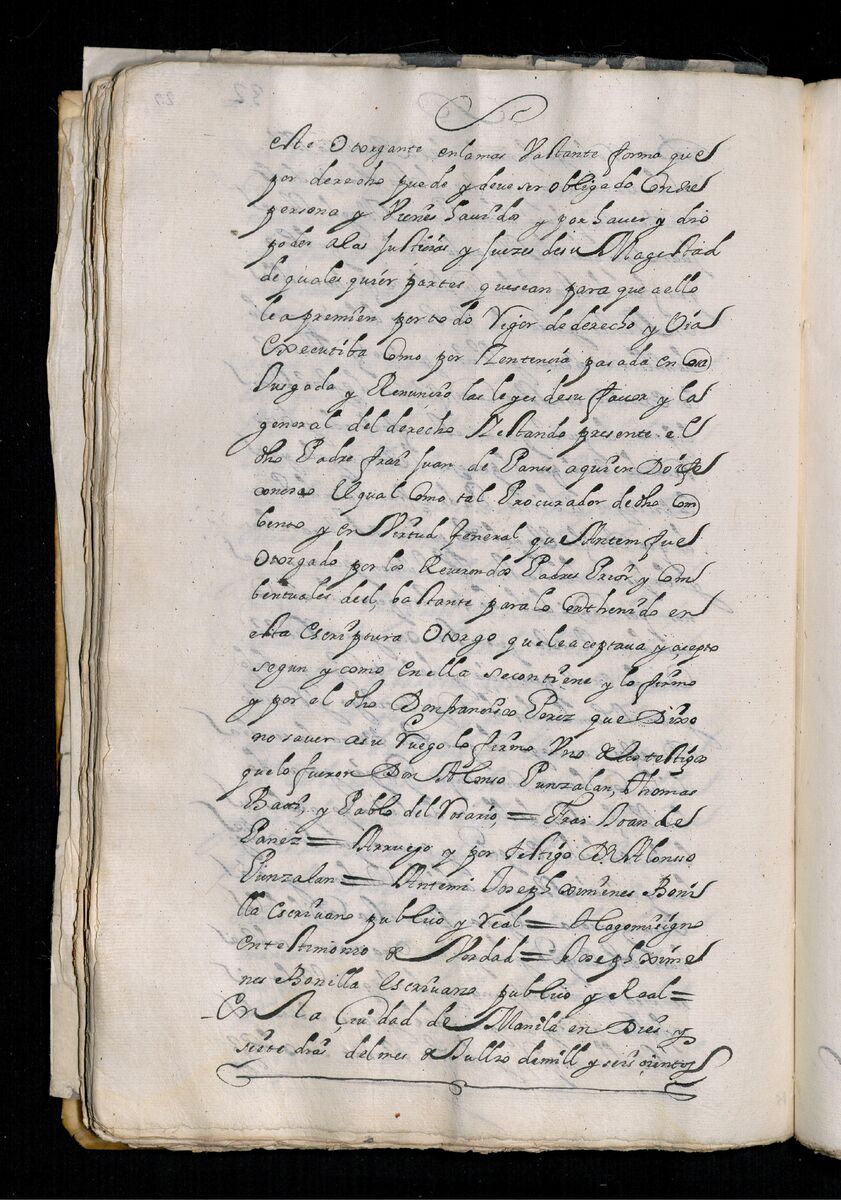 este Otorgante enlamas Vastante forma que
por derecho puede y deue ser obligado Con su
persona y Vienes hauidos y por hauer y dio
poder a las Justicias y Juezes desu Magestad
de quales quier partes quesean para que aello
le apremien por todo Vigor de derecho y Via
Executiba Como por Sentencia pasada en Cosa
Jusgada y Renuncio las leyes desu fauor y la
general del derecho Y estando presente el
dho Padre frai Juan de Panes aquien Doi fe
conosco El qual Como tal Procurador de dho Com
bento y en Virtud General que Antemi fue
Otorgado por los Reverendos Padres Prior y Com
bentuales del, bastante paralo Conthenido en
esta Escriptura Otorgo que la aceptaua y acepto
segun y como en ella se contiene y lo firmo
y por el dho Don francisco Perez que Dixo
no sauer asu Ruego lo firmo Vno de los testigos
que lo fueron Don Alonso Punzalan, Thomas
Baut, y Pablo del Rosario, = Frai Joan de
Panez = Arruego y por testigo D. Alonso
Punzalan = Antemi Joseph ximenes Boni
lla Escriuano publico y Real = Hago mi signo
En testimonio de Verdad = Joseph xime
nes Bonilla Escriuano publico y Real =
En la Ciudad de Manila en Dies y
siete dias del mes de Jullio de mill y seis cientos